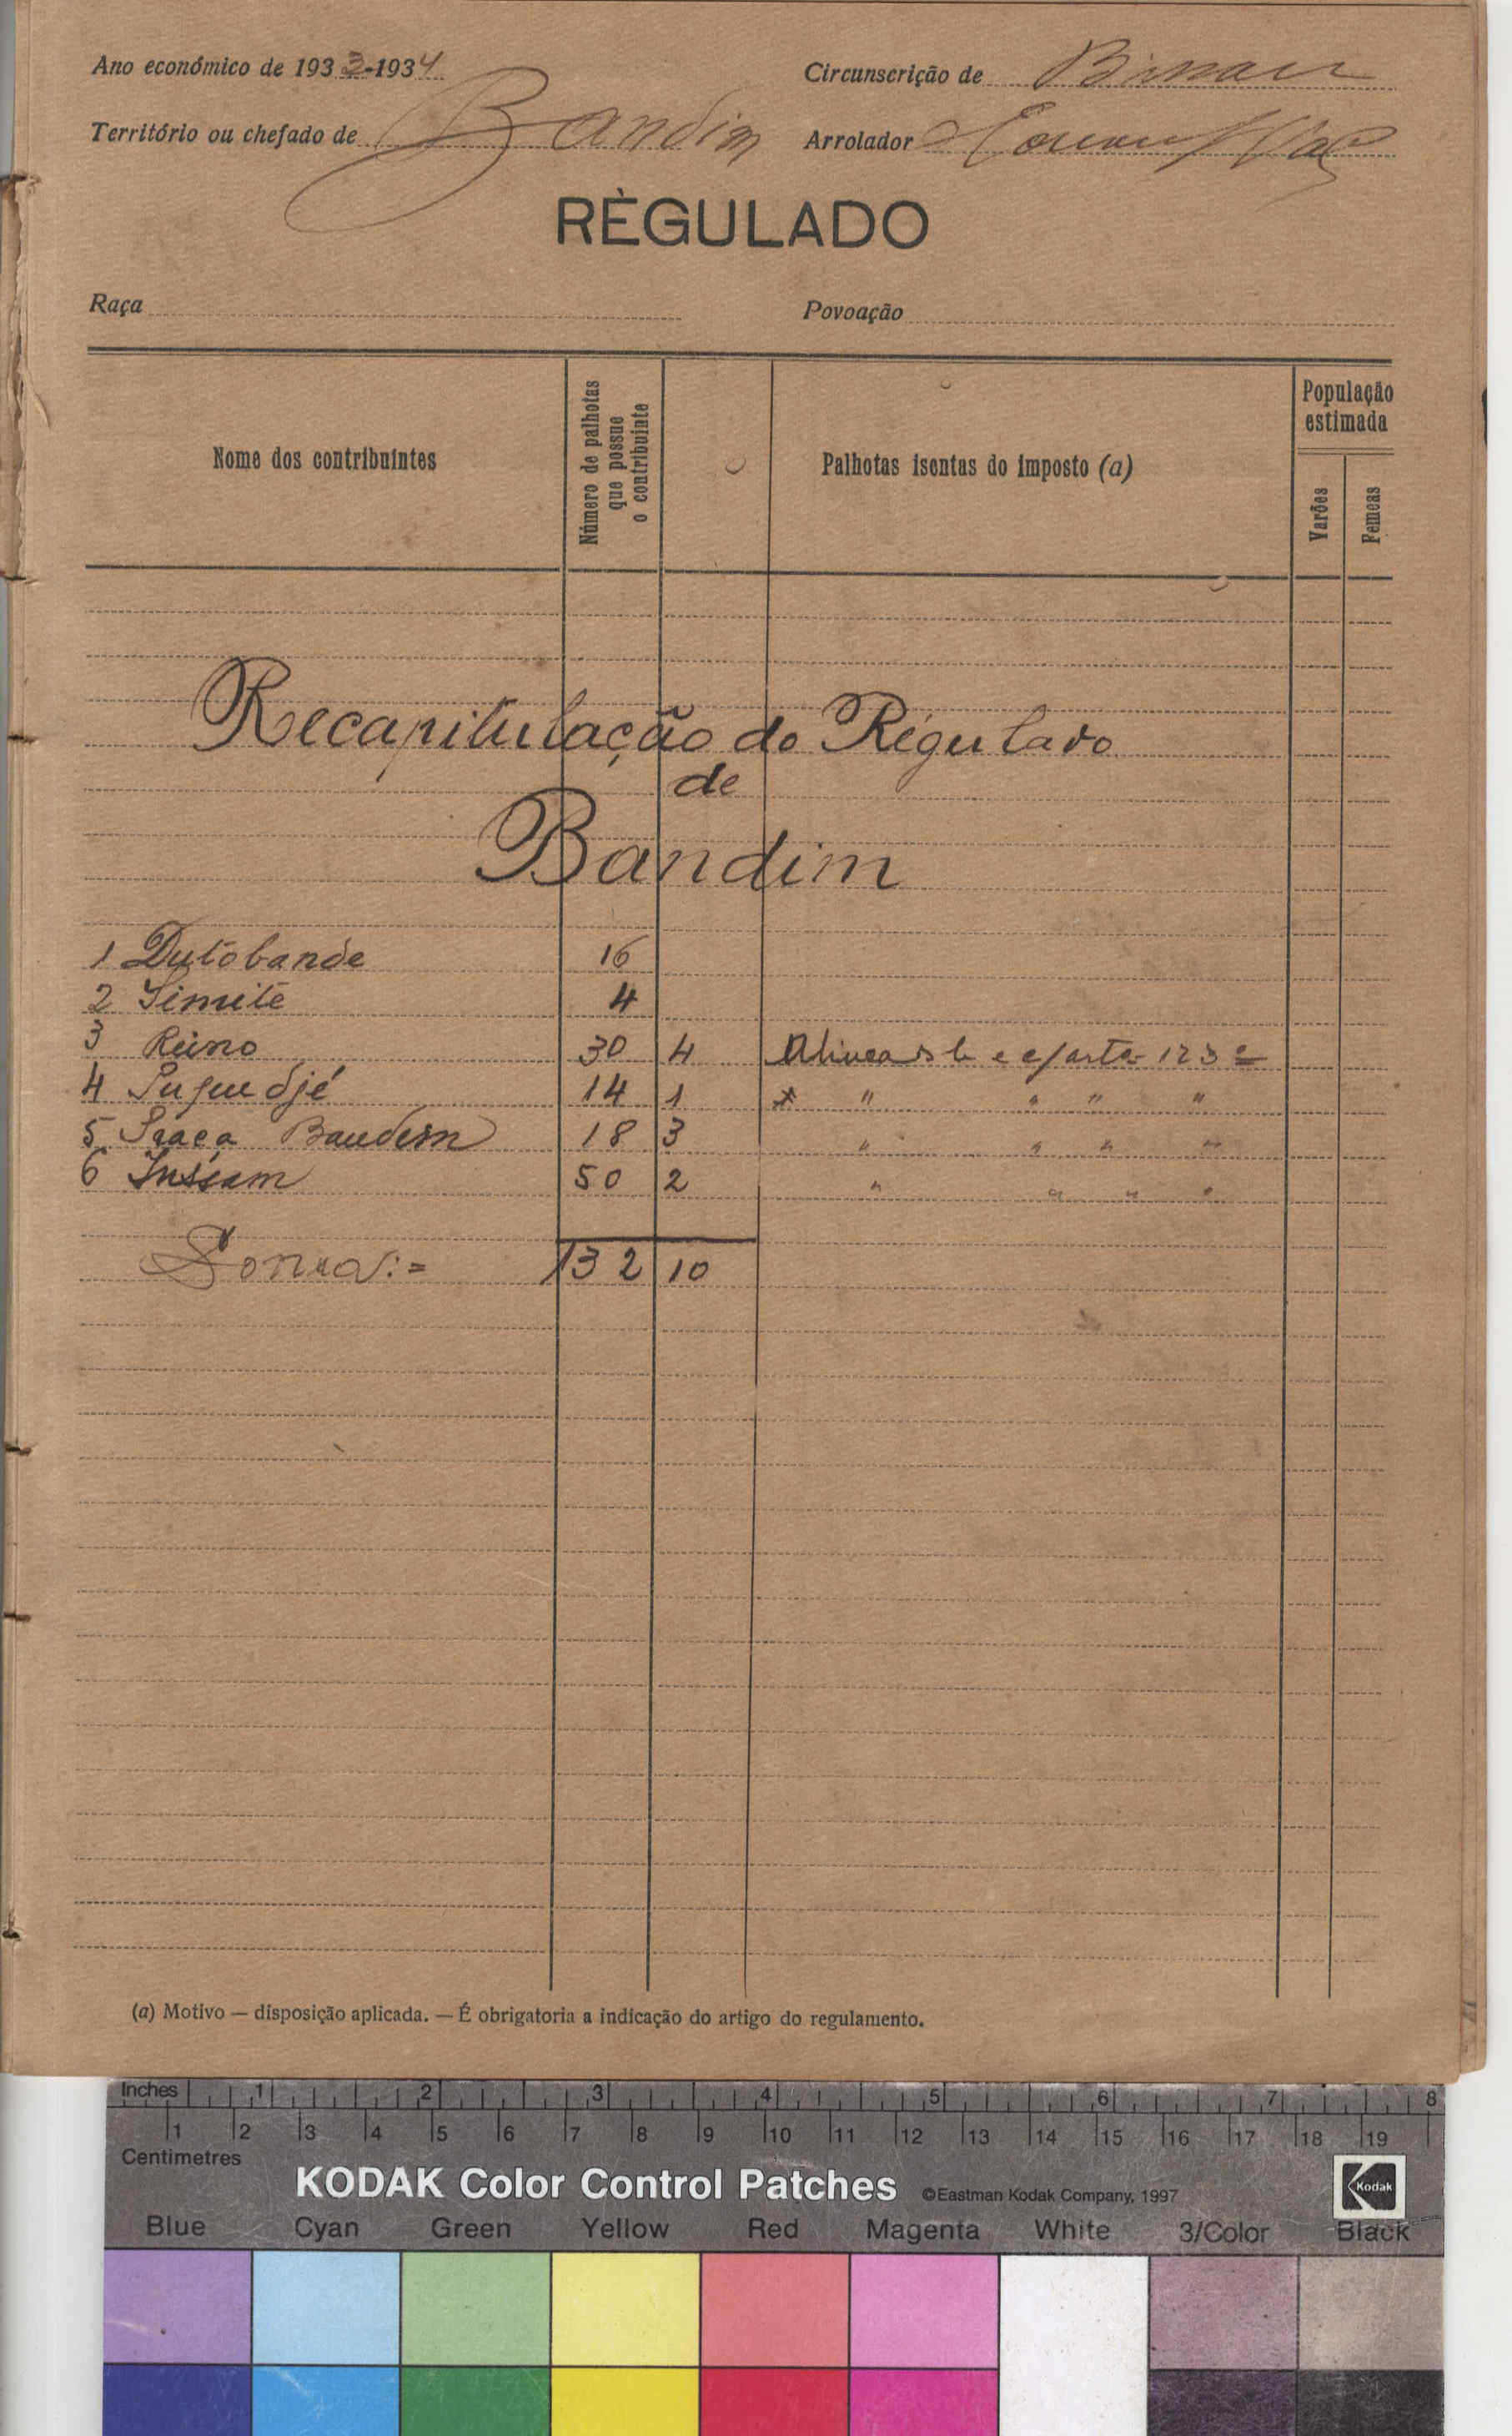 Ano económico de 1933-1934
Circunscrição de Bissau
Território ou chefado de Bandim
Arrolador
RÈGULADO
Raça
Povoação
Nome dos contribuintes
Número de palhotas que possue o contribuinte
Palhotas isentas do imposto (a)
População estimada
Varões
Femeas
Recapitulação do Régulado
de
Bandim
1 Dutobande 16
2 Simite 4
3 Reino 30 4 Alineas b e c/arte 123º
4 djé 14 1 " " " "
5 Praça Bandim 18 3 " " " "
6 Inssam 50 2 " " " "
Soma:= 132 10
(a) Motivo — disposição aplicada. — É obrigatoria a indicação do artigo do regulamento.
Inches 1 2 3 4 5 6 7 8
1 2 3 4 5 6 7 8 9 10 11 12 13 14 15 16 17 18 19
Centimetres
KODAK Color Control Patches ©Eastman Kodak Company, 1997 Kodak
Blue Cyan Green Yellow Red Magenta White 3/Color Black